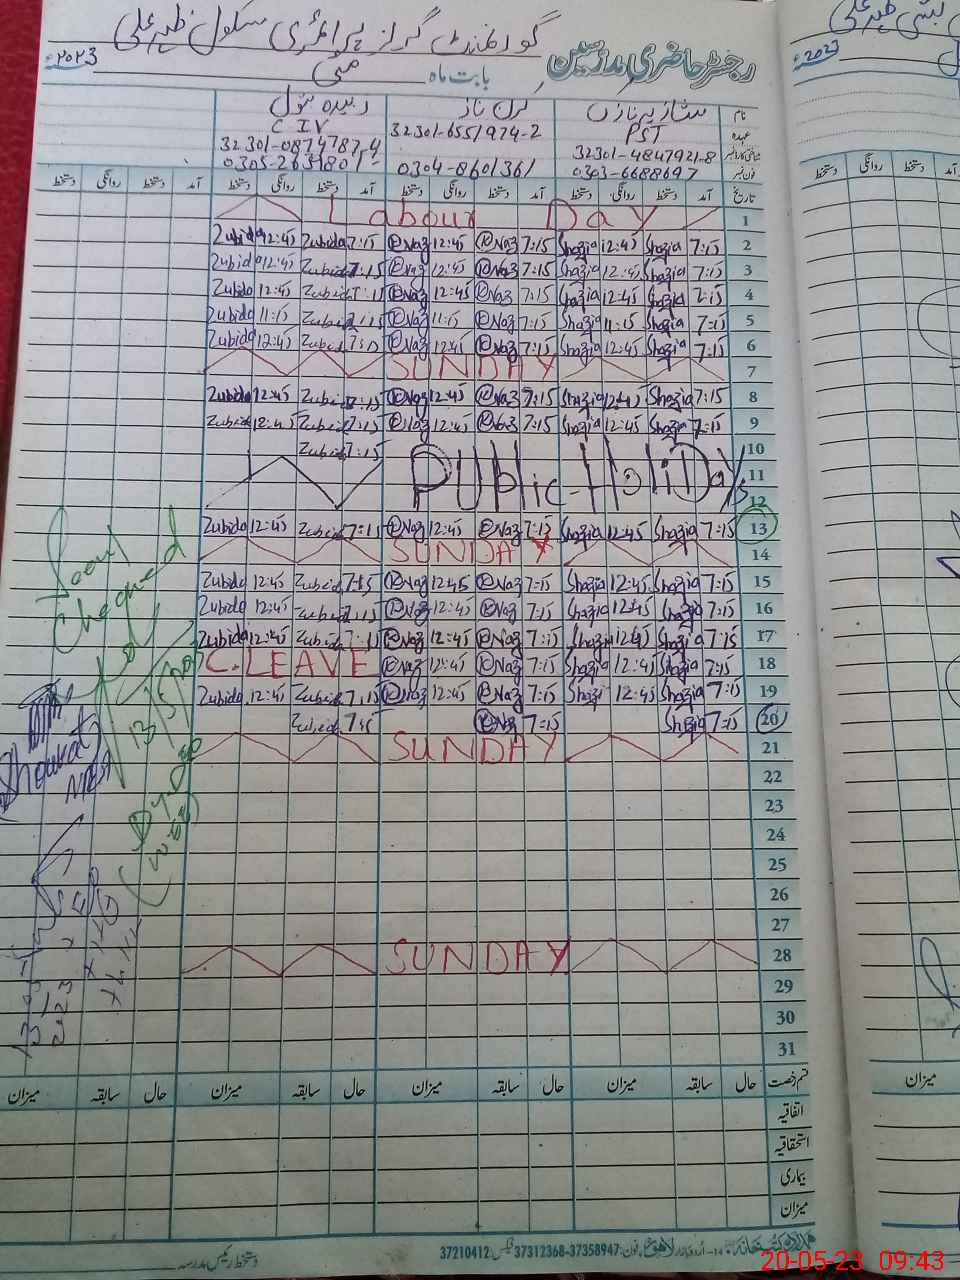 گورنمنٹ گرلز پرائمری سکول ظہیر علی
رجسٹر حاضری مدرسین
بابت ماہ مئی ۲۰۲۳ء
نام شازیہ نازن کرن ناز زبیدہ بتول
عہدہ PST C IV
32301-4847921-8 32301-6551974-2
0303-6688697 0304-8601361
تاریخ آمد دستخط روانگی دستخط آمد دستخط روانگی دستخط آمد دستخط روانگی دستخط آمد دستخط روانگی دستخط
1 Labour Day
2 7:15 Shazia 12:45 Shazia 7:15 K Naz 12:45 K Naz 7:15 Zubida 12:45 Zubida
3 7:15 Shazia 12:45 Shazia 7:15 K Naz 12:45 K Naz 7:15 Zubida 12:45 Zubida
4 7:15 Shazia 12:45 Shazia 7:15 K Naz 12:45 K Naz Zubida 12:45 Zubida
5 7:15 Shazia 11:15 Shazia 7:15 K Naz 11:15 K Naz Zubida 11:15 Zubida
6 7:15 Shazia 12:45 Shazia 7:15 K Naz 12:45 K Naz Zubida 12:45 Zubida
7 SUNDAY
8 7:15 Shazia 12:45 Shazia 7:15 K Naz 12:45 K Naz Zubida 12:45 Zubida
9 7:15 Shazia 12:45 Shazia 7:15 K Naz 12:45 K Naz 7:15 Zubida 12:45 Zubida
10 7:15 Zubida
11 Public-HoliDays
12
13 7:15 Shazia 12:45 Shazia 7:15 K Naz 12:45 K Naz 7:15 Zubida 12:45 Zubida
14 SUNDAY
15 7:15 Shazia 12:45 Shazia 7:15 K Naz 12:45 K Naz 7:15 Zubida 12:45 Zubida
16 7:15 Shazia 12:45 Shazia 7:15 K Naz 12:45 K Naz 7:15 Zubida 12:45 Zubida
17 7:15 Shazia 12:45 Shazia 7:15 K Naz 12:45 K Naz Zubida 12:45 Zubida
18 7:15 Shazia 12:45 Shazia 7:15 K Naz 12:45 K Naz C.LEAVE
19 7:15 Shazia 12:45 Shazia 7:15 K Naz 12:45 K Naz 7:15 Zubida 12:45 Zubida
20 7:15 Shazia 7:15 K Naz 7:15 Zubida
21 SUNDAY
22
23
24
25
26
27
28 SUNDAY
29
30
31
Chequed
13/5/23
قسم رخصت حال سابقہ میزان حال سابقہ میزان حال سابقہ میزان حال سابقہ میزان
اتفاقیہ
استحقاقیہ
بیماری
میزان
14-اُردو بازار لاہور فون: 37358947-37312368 فیکس: 37210412
دستخط رئیس مدرسہ
۲۰۲۳ء
میزان
20-05-23 09:43